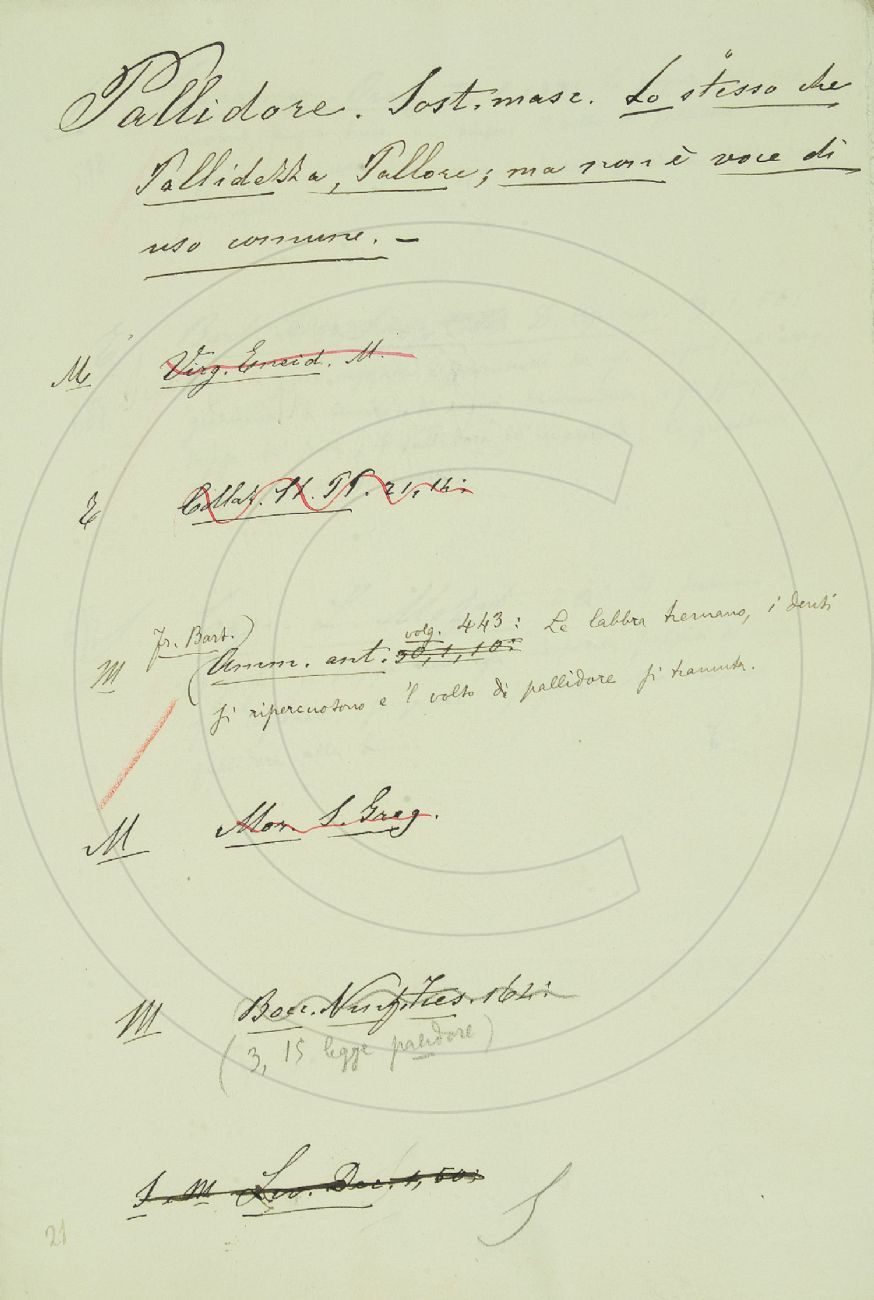 Pallidore. Sost. masc. Lo stesso che
Pallidezza, Pallore; ma non è voce di
uso comune. –
M Virg. Eneid. M.
Z Collaz. SS. PP. 21, 14:
Fr. Bart.)
volg. 443: Le labbra tremano, i denti
M (Amm. ant. 30, 1, 10:
si ripercuotono e 'l volto di pallidore si tramuta.
M Mor. S. Greg.
M Bocc. Ninf. Fies. 164:
(3, 15 legge palidore)
S. M Liv. Dec. 1, 50:
21